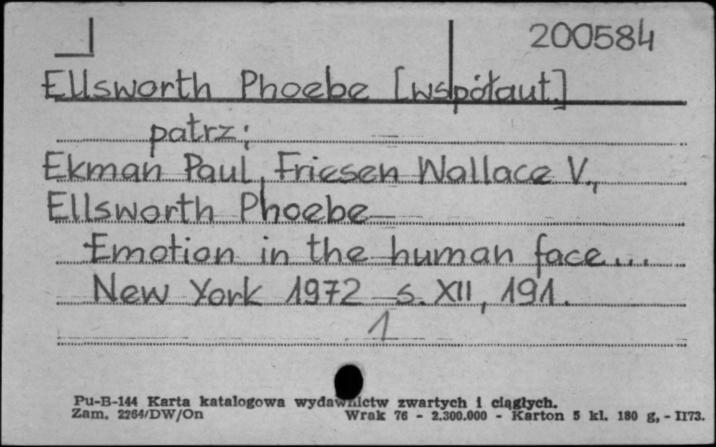 200584
Ellsworth Phoebe [współaut.]
patrz:
Ekman Paul, Friesen Wallace V.,
Ellsworth Phoebe
Emotion in the human face...
New York 1972 s. XII, 191.
1
Pu-B-144 Karta katalogowa wydawnictw zwartych i ciągłych.
Zam. 2264/DW/On Wrak 76 - 2.300.000 - Karton 5 kl. 180 g, - II73.